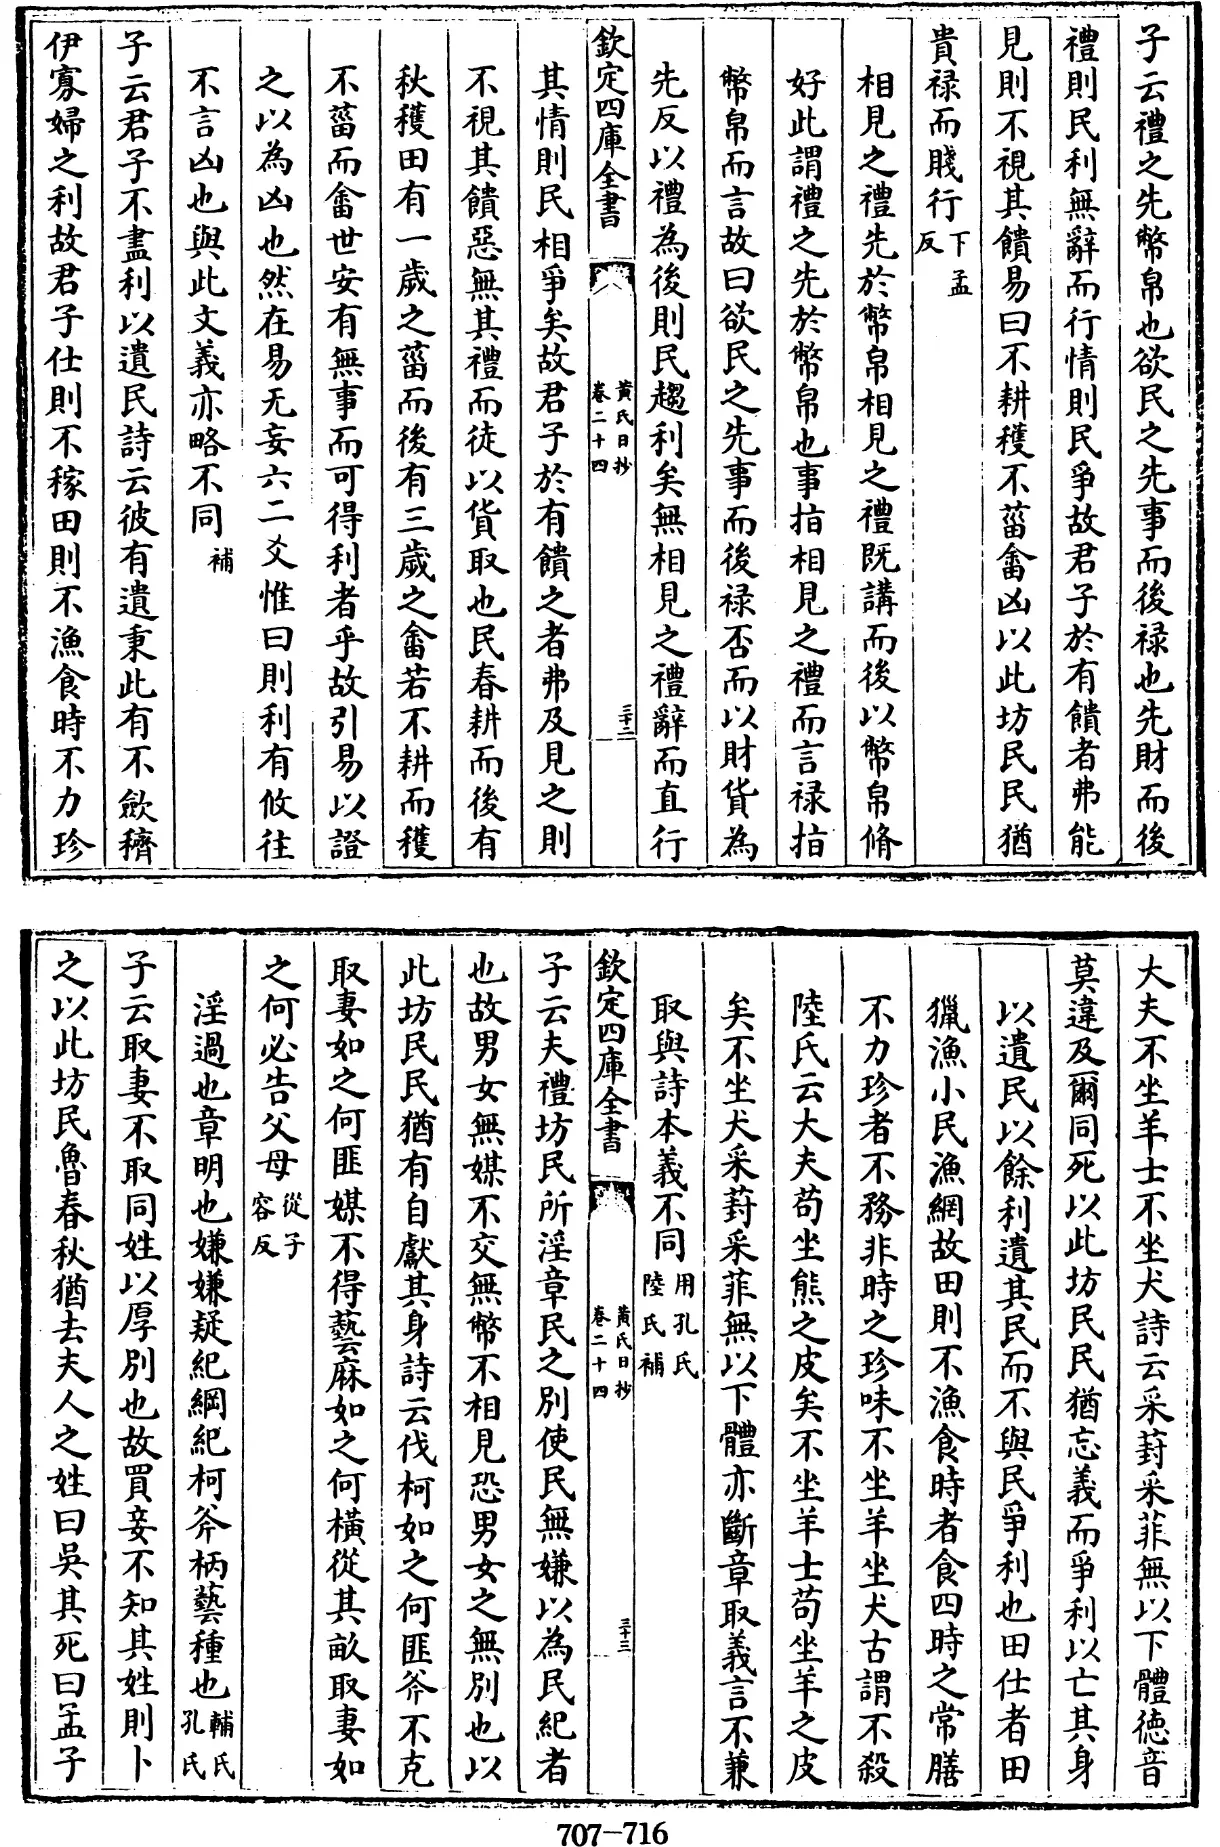 子云禮之先幣帛也欲民之先事而後禄也先財而後
禮則民利無辭而行情則民爭故君子於有饋者弗能
見則不視其饋易曰不耕穫不菑畬凶以此坊民民猶
貴禄而賤行下孟反
相見之禮先於幣帛相見之禮既講而後以幣帛脩
好此謂禮之先於幣帛也事指相見之禮而言禄指
幣帛而言故曰欲民之先事而後禄否而以財貨為
先反以禮為後則民趨利矣無相見之禮辭而直行
欽定四庫全書 黃氏日抄 卷二十四 三十二
其情則民相爭矣故君子於有饋之者弗及見之則
不視其饋惡無其禮而徒以貨取也民春耕而後有
秋穫田有一歲之菑而後有三歲之畬若不耕而穫
不菑而畬世安有無事而可得利者乎故引易以證
之以為凶也然在易无妄六二爻惟曰則利有攸往
不言凶也與此文義亦略不同補
子云君子不盡利以遺民詩云彼有遺秉此有不歛穧
伊寡婦之利故君子仕則不稼田則不漁食時不力珍
大夫不坐羊士不坐犬詩云采葑采菲無以下體徳音
莫違及爾同死以此坊民民猶忘義而爭利以亡其身
以遺民以餘利遺其民而不與民爭利也田仕者田
獵漁小民漁網故田則不漁食時者食四時之常膳
不力珍者不務非時之珍味不坐羊坐犬古謂不殺
陸氏云大夫苟坐熊之皮矣不坐羊士苟坐羊之皮
矣不坐犬采葑采菲無以下體亦斷章取義言不兼
取與詩本義不同用孔氏陸氏補
欽定四庫全書 黃氏日抄 卷二十四 三十三
子云夫禮坊民所淫章民之別使民無嫌以為民紀者
也故男女無媒不交無幣不相見恐男女之無別也以
此坊民民猶有自獻其身詩云伐柯如之何匪斧不克
取妻如之何匪媒不得藝麻如之何橫從其畝取妻如
之何必告父母從子容反
淫過也章明也嫌嫌疑紀綱紀柯斧柄藝種也輔氏孔氏
子云取妻不取同姓以厚別也故買妾不知其姓則卜
之以此坊民魯春秋猶去夫人之姓曰吳其死曰孟子
707-716